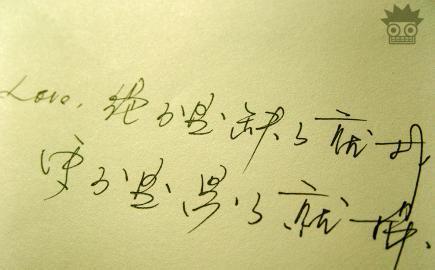 Love. 绝不是缺了就找
更不是累了就换.